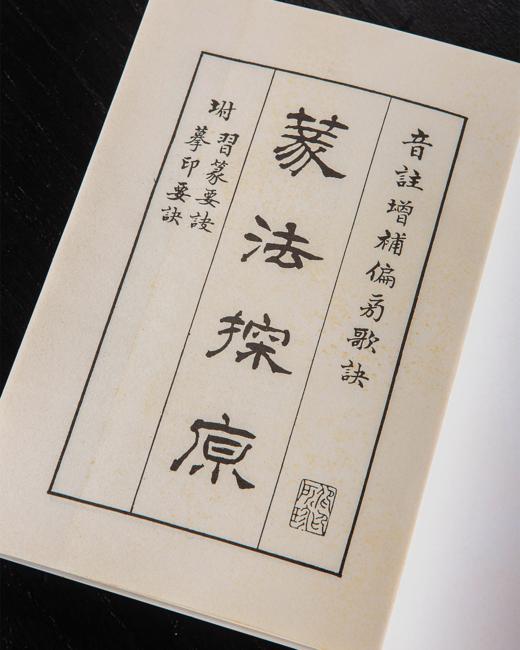 音註增補偏旁歌訣
篆法探原
坿
習篆要訣
摹印要訣